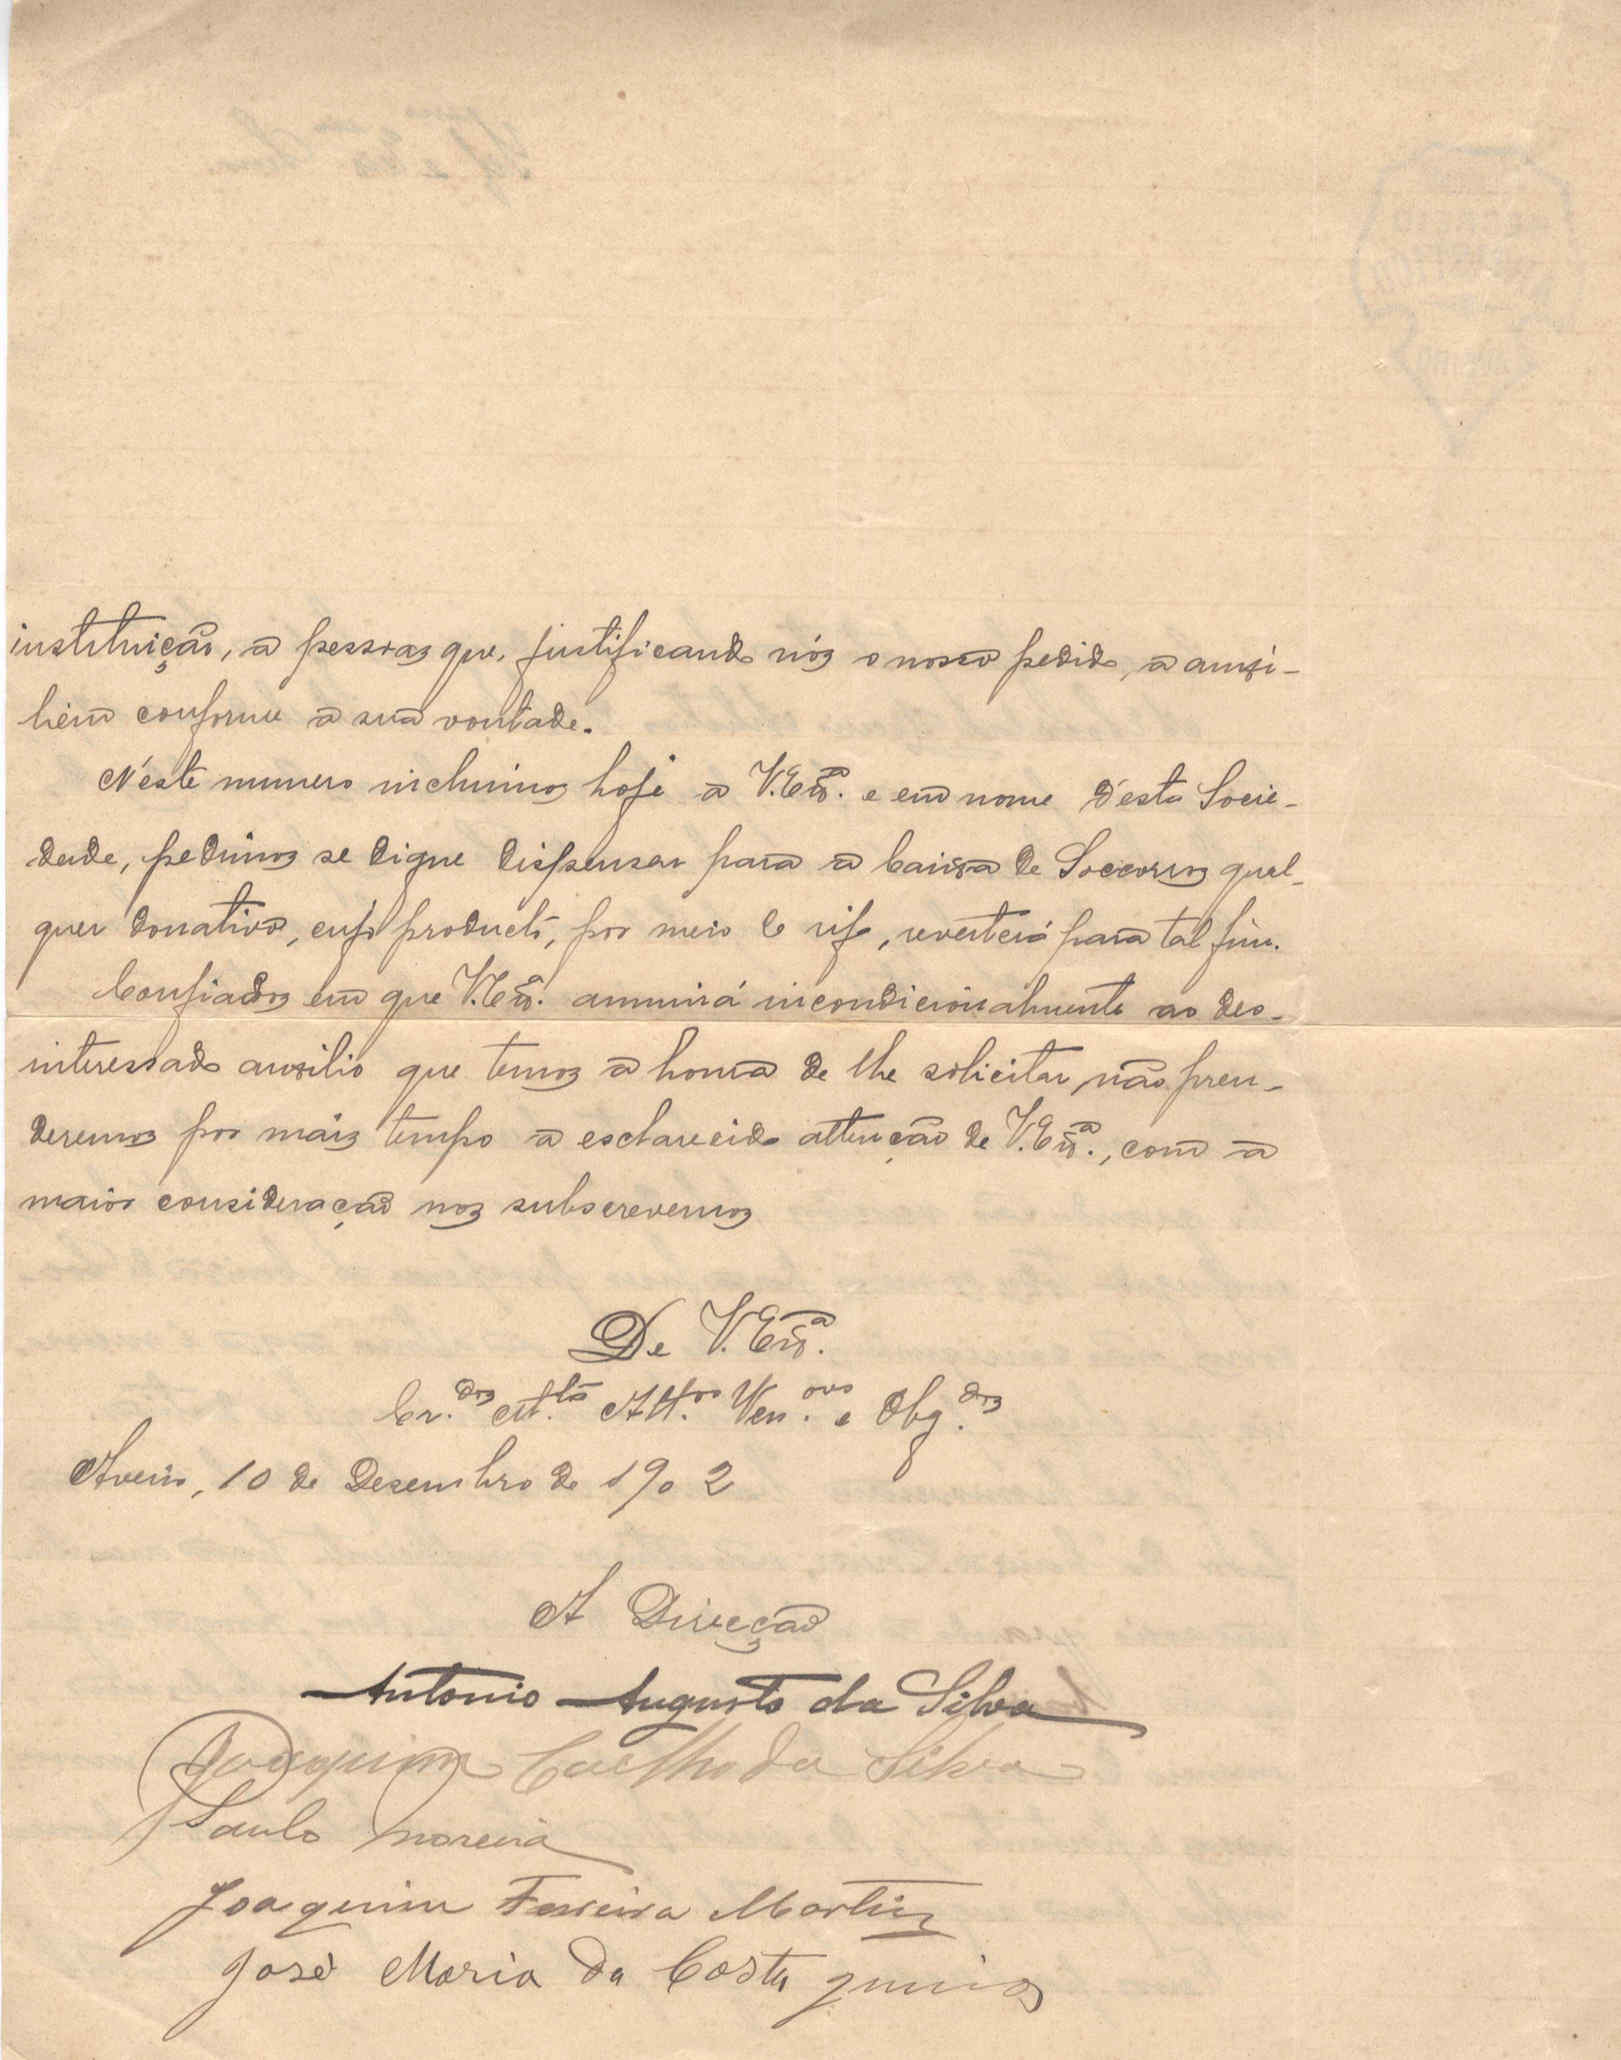 instituição, a pessoas que, justificando nós o nosso pedido, a auxi-
liem conforme a sua vontade.
N'este numero incluimos hoje a V. Exª. e em nome d'esta Socie-
dade, pedimos se digne dispensar para a Caixa de Soccorros qual-
quer donativo, cujo producto, por meio de rifa, reverterá para tal fim.
Confiados em que V. Exª. annuirá incondicionalmente ao des-
interessado auxilio que temos a honra de lhe solicitar, não pren-
deremos por mais tempo a esclarecida attenção de V. Exª., com a
maior consideração nos subscrevemos
De V. Exª.
Cr.dos Att.os Ven.ores e Obg.dos
Aveiro, 10 de Dezembro de 1902
A Direcção
Antonio Augusto da Silva
Joaquim Coelho da Silva
Paulo Moreira
Joaquim Ferreira Martins
José Maria da Costa Junior